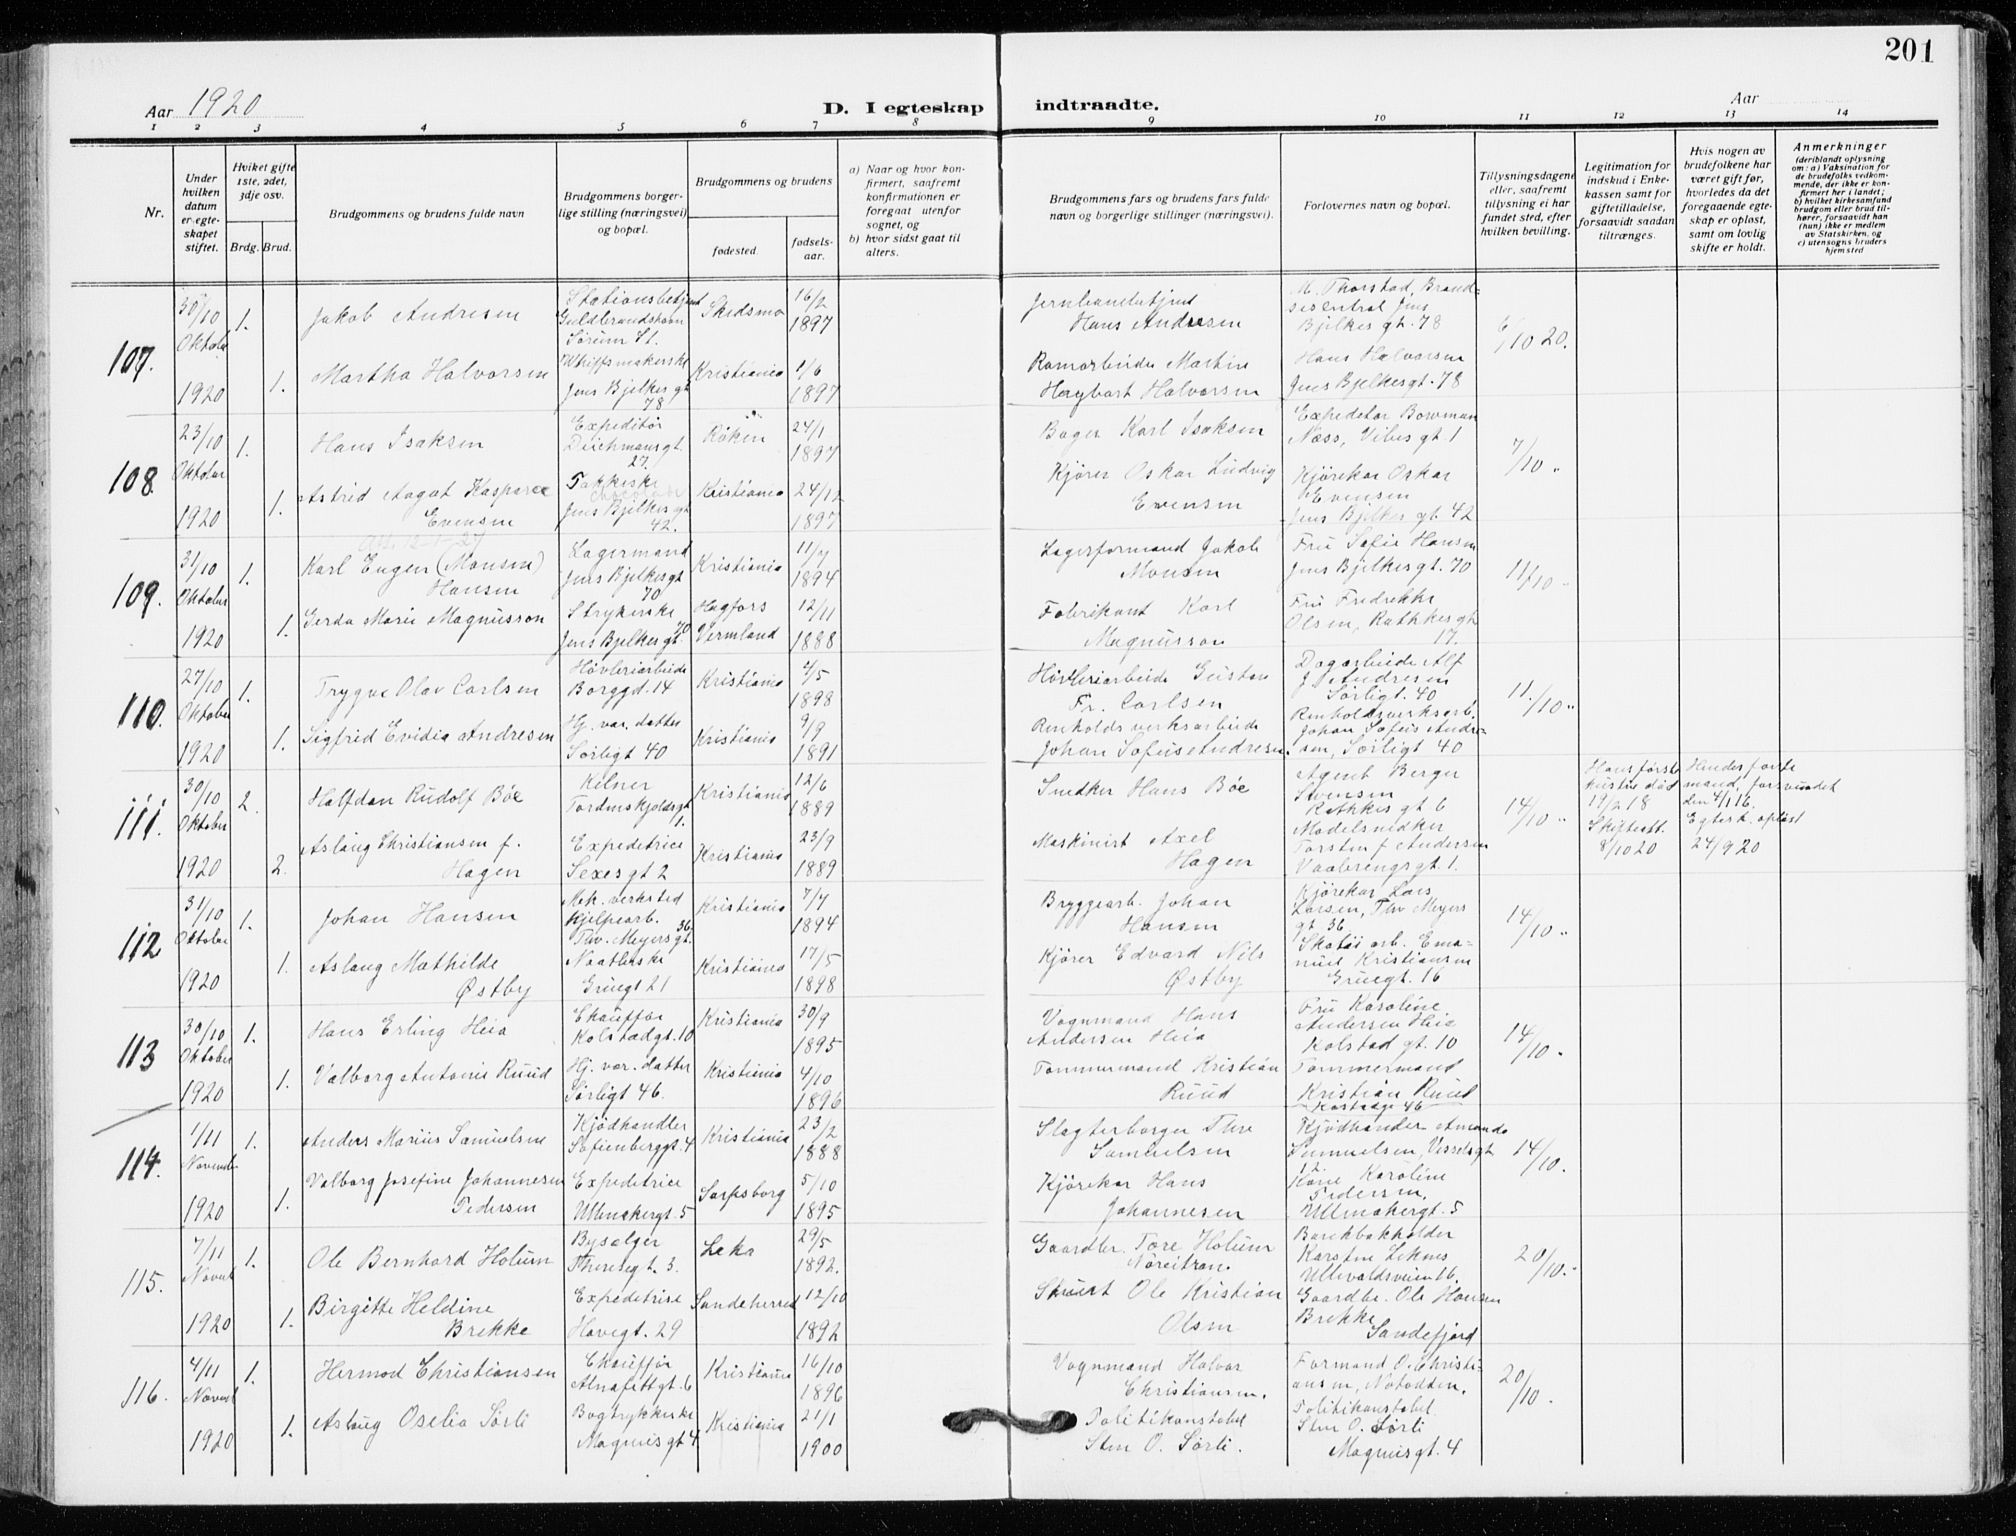 201
Aar 1920
D. I egteskap
indtraadte.
Aar
1 2 3 4 5 6 7 8 9 10 11 12 13 14
Nr.
Under hvilken datum er egteskapet stiftet.
Hviket gifte 1ste, 2det, 3dje osv.
Brdg. Brud.
Brudgommens og brudens fulde navn
Brudgommens borgerlige stilling (næringsvei) og bopæl.
Brudgommens og brudens
fødested.
fødselsaar.
a) Naar og hvor konfirmert, saafremt konfirmationen er foregaat utenfor sognet, og
b) hvor sidst gaat til alters.
Brudgommens fars og brudens fars fulde navn og borgerlige stillinger (næringsvei).
Forlovernes navn og bopæl.
Tillysningsdagene eller, saafremt tillysning ei har fundet sted, efter hvilken bevilling.
Legitimation for indskud i Enkekassen samt for giftetilladelse, forsaavidt saadan tiltrænges.
Hvis nogen av brudefolkene har været gift før, hvorledes da det foregaaende egteskap er opløst, samt om lovlig skifte er holdt.
Anmerkninger
(deriblandt oplysning om: a) Vaksination for de brudefolks vedkommende, der ikke er konfirmert her i landet; b) hvilket kirkesamfund brudgom eller brud tilhører, forsaavidt han (hun) ikke er medlem av Statskirken, og c) utensogns bruders hjemsted
107. 30/10 Oktober 1920
1. Jakob Andresen
Stationsbetjent
Sørum St.
Skedsmo 16/2 1897
Jernbanebetjent
Hans Andresen
M. Thorstad, Brandsesentral Jens
Bjelkes gt. 78
6/10 20.
1. Martha Halvorsen
Jens Bjelkes gt
78
Kristiania 1/6 1897
Martin
Hagbart Halvorsen
Hans Halvorsen
Jens Bjelkesgt. 78
108. 23/10 Oktober 1920
1. Hans Isaksen
Expeditør
Deichmansgt.
27.
Røken 24/1 1897
Bager Karl Isaksen
Expeditør Bowman
Næss, Vibes gt. 1
7/10 "
1. Astrid Aagot Kasparee
Evensen
Pakkerske
Jens Bjelkes gt
42.
Kristiania 24/12 1897
Kjører Oskar Ludvig
Evensen
Kjørekar Oskar
Evensen
Jens Bjelkes gt. 42
109. 31/10 Oktober 1920
1. Karl Eugen (Monsen)
Hansen
Lagermand
Jens Bjelkesgt
70
Kristiania 11/7 1894
Lagerformand Jakob
Monsen
Fru Sofie Hansen
Jens Bjelkesgt. 70
11/10 "
1. Gerda Marie Magnusson
Strykerske
Jens Bjelkesgt. 70
Hagfors
Vermland 12/11 1888
Fabrikant Karl
Magnusson
Fru Fredrikke
Olsen, Rathkes gt
17.
110. 27/10 Oktober 1920
1. Trygve Olav Carlsen
Høvleriarbeider
Borggd. 14
Kristiania 4/5 1898
Høvleriarbeider Gustav
Fr. Carlsen
Dagarbeider Alf
J. Andresen
Sørligt. 40
11./10 "
1. Sigfrid Evidia Andresen
Hj. var. datter
Sørligt 40
Kristiania 9/9 1891
Renholdsverksarbeider
Johan Sofus Andresen.
Renholdsverksarb.
Johan Sofus Andresen, Sørligt 40
111. 30/10 Oktober 1920
2. Halfdan Rudolf Bøe
Kelner
Tordenskjoldsgt
1.
Kristiania 12/6 1889
Snedker Hans Bøe
Agent Berger
Svensen
Rathkes gt 6
14/10 "
Hans første
hustru død
19/2 18
Skifteatt.
8/10 20
Hendes første
mand, forsvundet
den 4/1 16.
Egtesk. opløst
24/9 20
2. Aslaug Christiansen f.
Hagen
Expeditrice
Sexes gt 2
Kristiania 23/9 1889
Maskinist Axel
Hagen
Modelsnedker
Torsten f. Andersen
Vaalerengsgt. 1.
112 31/10 Oktober 1920
1. Johan Hansen
Mek. verksted
Hjelpearb.
Thv. Meyersgt. 36
Kristiania 7/7 1894
Bryggearb. Johan
Hansen
Kjørekar Lars
Larsen, Thv Meyers
gt 36
14/10 "
1. Aslaug Mathilde
Østby
Gruegt 21
Kristiania 17/5 1898
Kjører Edvard Nils
Østby
Skotøi arb. Emanuel Kristiansen
Gruegt. 16
113 30/10 Oktober 1920
1. Hans Erling Heia
Chauffør
Kolstadgt. 10
Kristiania 30/9 1895
Vognmand Hans
Andersen Heia
Fru Karoline
Andersen Heia
Kolstad gt. 10
14/10 "
1. Valborg Antonie Ruud
Hj. var. datter
Sørligt 46.
Kristiania 4/10 1896
Tømmermand Kristian
Ruud
Tømmermand
Kristian Ruud
114. 1/11 November 1920
1. Anders Marius Samuelsen
Kjødhandler
Sofienberggt. 4
Kristiania 23/2 1888
Slagterborger Thre
Samuelsen
Kjødhandler Amanda
Samuelsen, Vesselsgt
12.
14/10.
1. Valborg Josefine Johannesen
Pedersen
Expeditrice
Ullmakergt. 5
Sarpsborg 5/10 1895
Kjørekar Hans
Johannesen
Kone Karoline
Pedersen,
Ullmakergt. 5
115. 7/11 Novbr 1920
1. Ole Bernhard Holum
Bysælger
Theresgt. 3.
Leka 29/5 1892.
Gaardbr. Tore Holum
Karsten Lekns
Ullevaldsveien 16.
20/10.
1. Birgitte Heldine
Brekke
Expeditrise
Havegt. 29
Sandeherred 12/10 1892
Ole Kristian
Olsen
Gaardbr. Ole Hansen
Brekke
Sandefjord
116. 4/11 Novbr 1920
1. Hermod Christiansen
Chauffør
Alnafettgt. 6
Kristiania 16/10 1896
Vognmand Halvor
Christiansen.
Formand O. Christiansen, Notodden.
20/10.
1. Aslaug Oselia Sørli
Bogtrykkerske
Magnusgt 4.
Kristiania 21/1 1900
Politikonstabel
Sten O. Sørli.
Politikonstabel
Sten O. Sørli
Magnusgt. 4